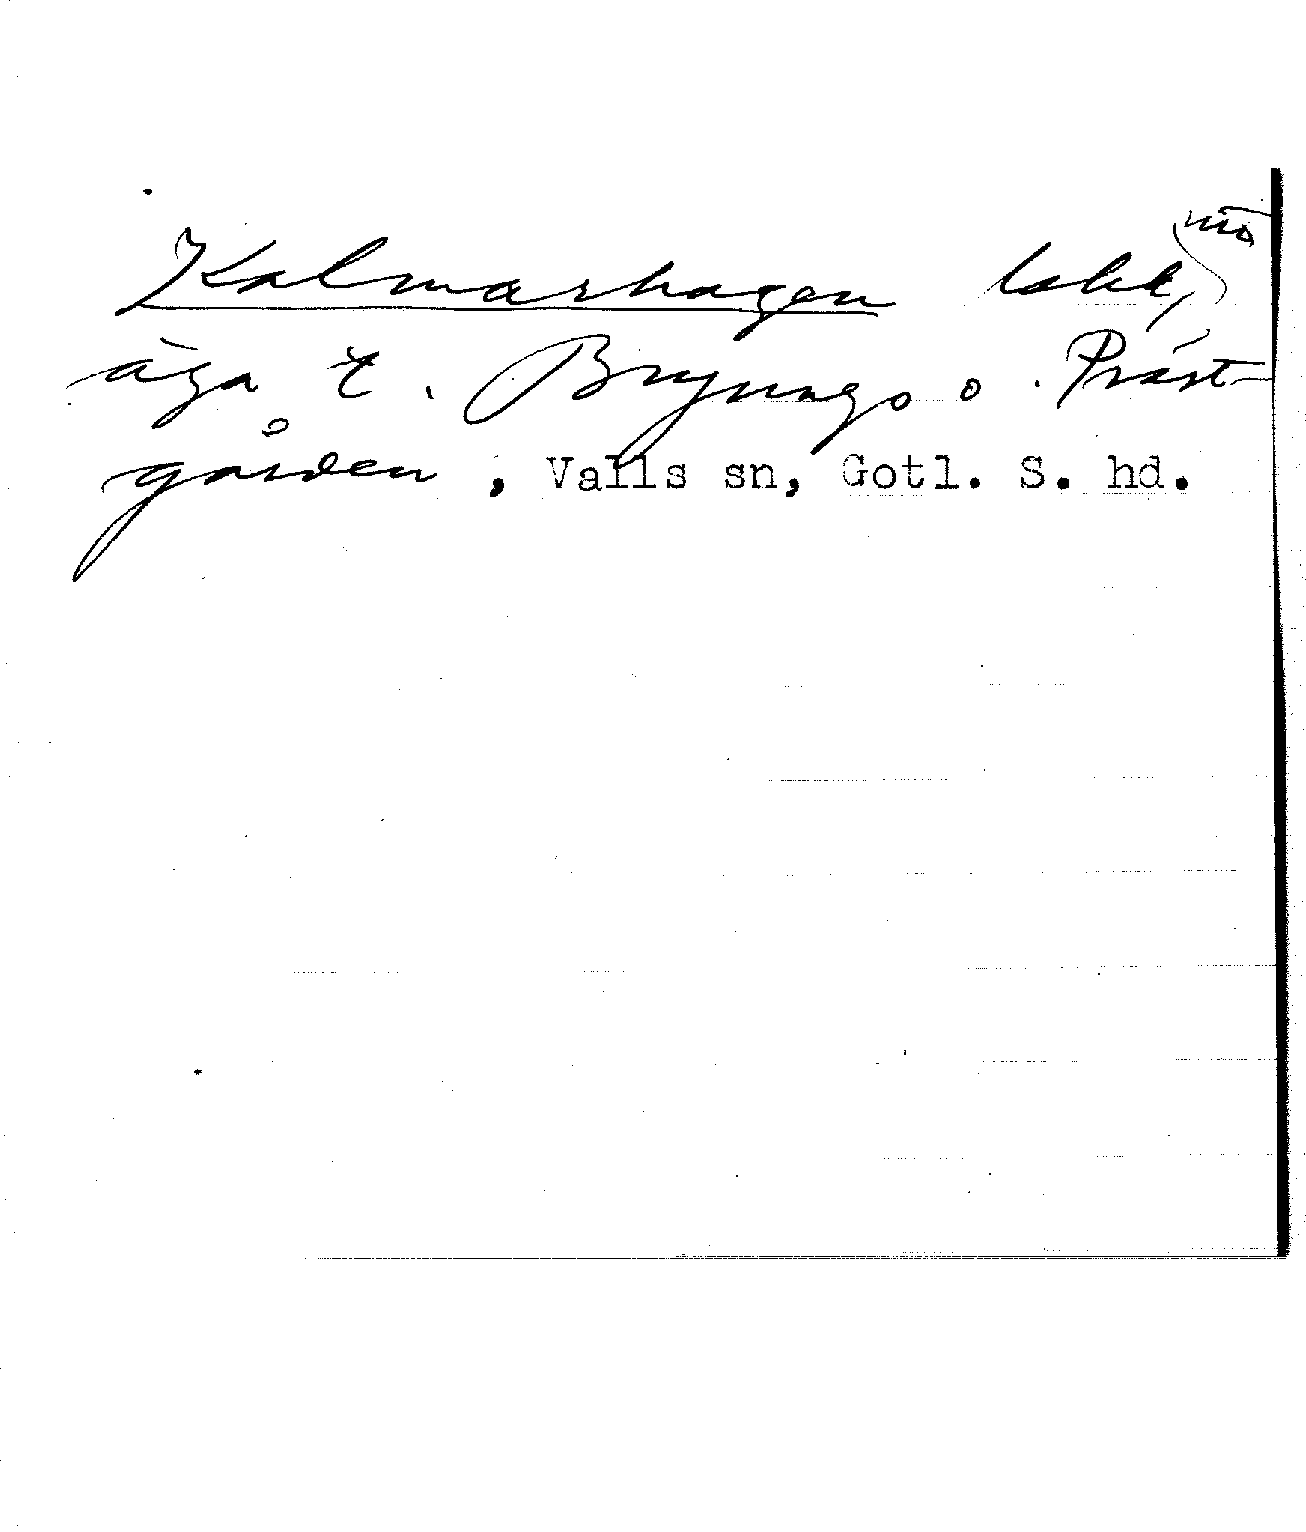 Kalmarhagen lokal,
äga t. Bryungs o. Präst-
gården, Valls sn, Gotl. S. hd.